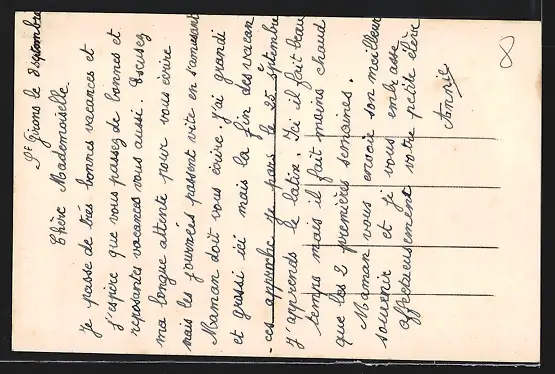 St Girons le 8 septembre
Chère Mademoiselle
Je passe de très bonnes vacances et
j'espère que vous passez de bonnes et
reposantes vacances vous aussi. Excusez
ma longue attente pour vous écrire
mais les journées passent vite en s'amusant
Maman doit vous écrire. J'ai grandi
et grossi ici mais la fin des vacan
-ces approche je pars le 25 septembre
J'apprends le latin. Ici il fait beau
temps mais il fait moins chaud
que les 2 premières semaines.
Maman vous envoie son meilleur
souvenir et je vous embrasse
affectueusement votre petite élève
Annie